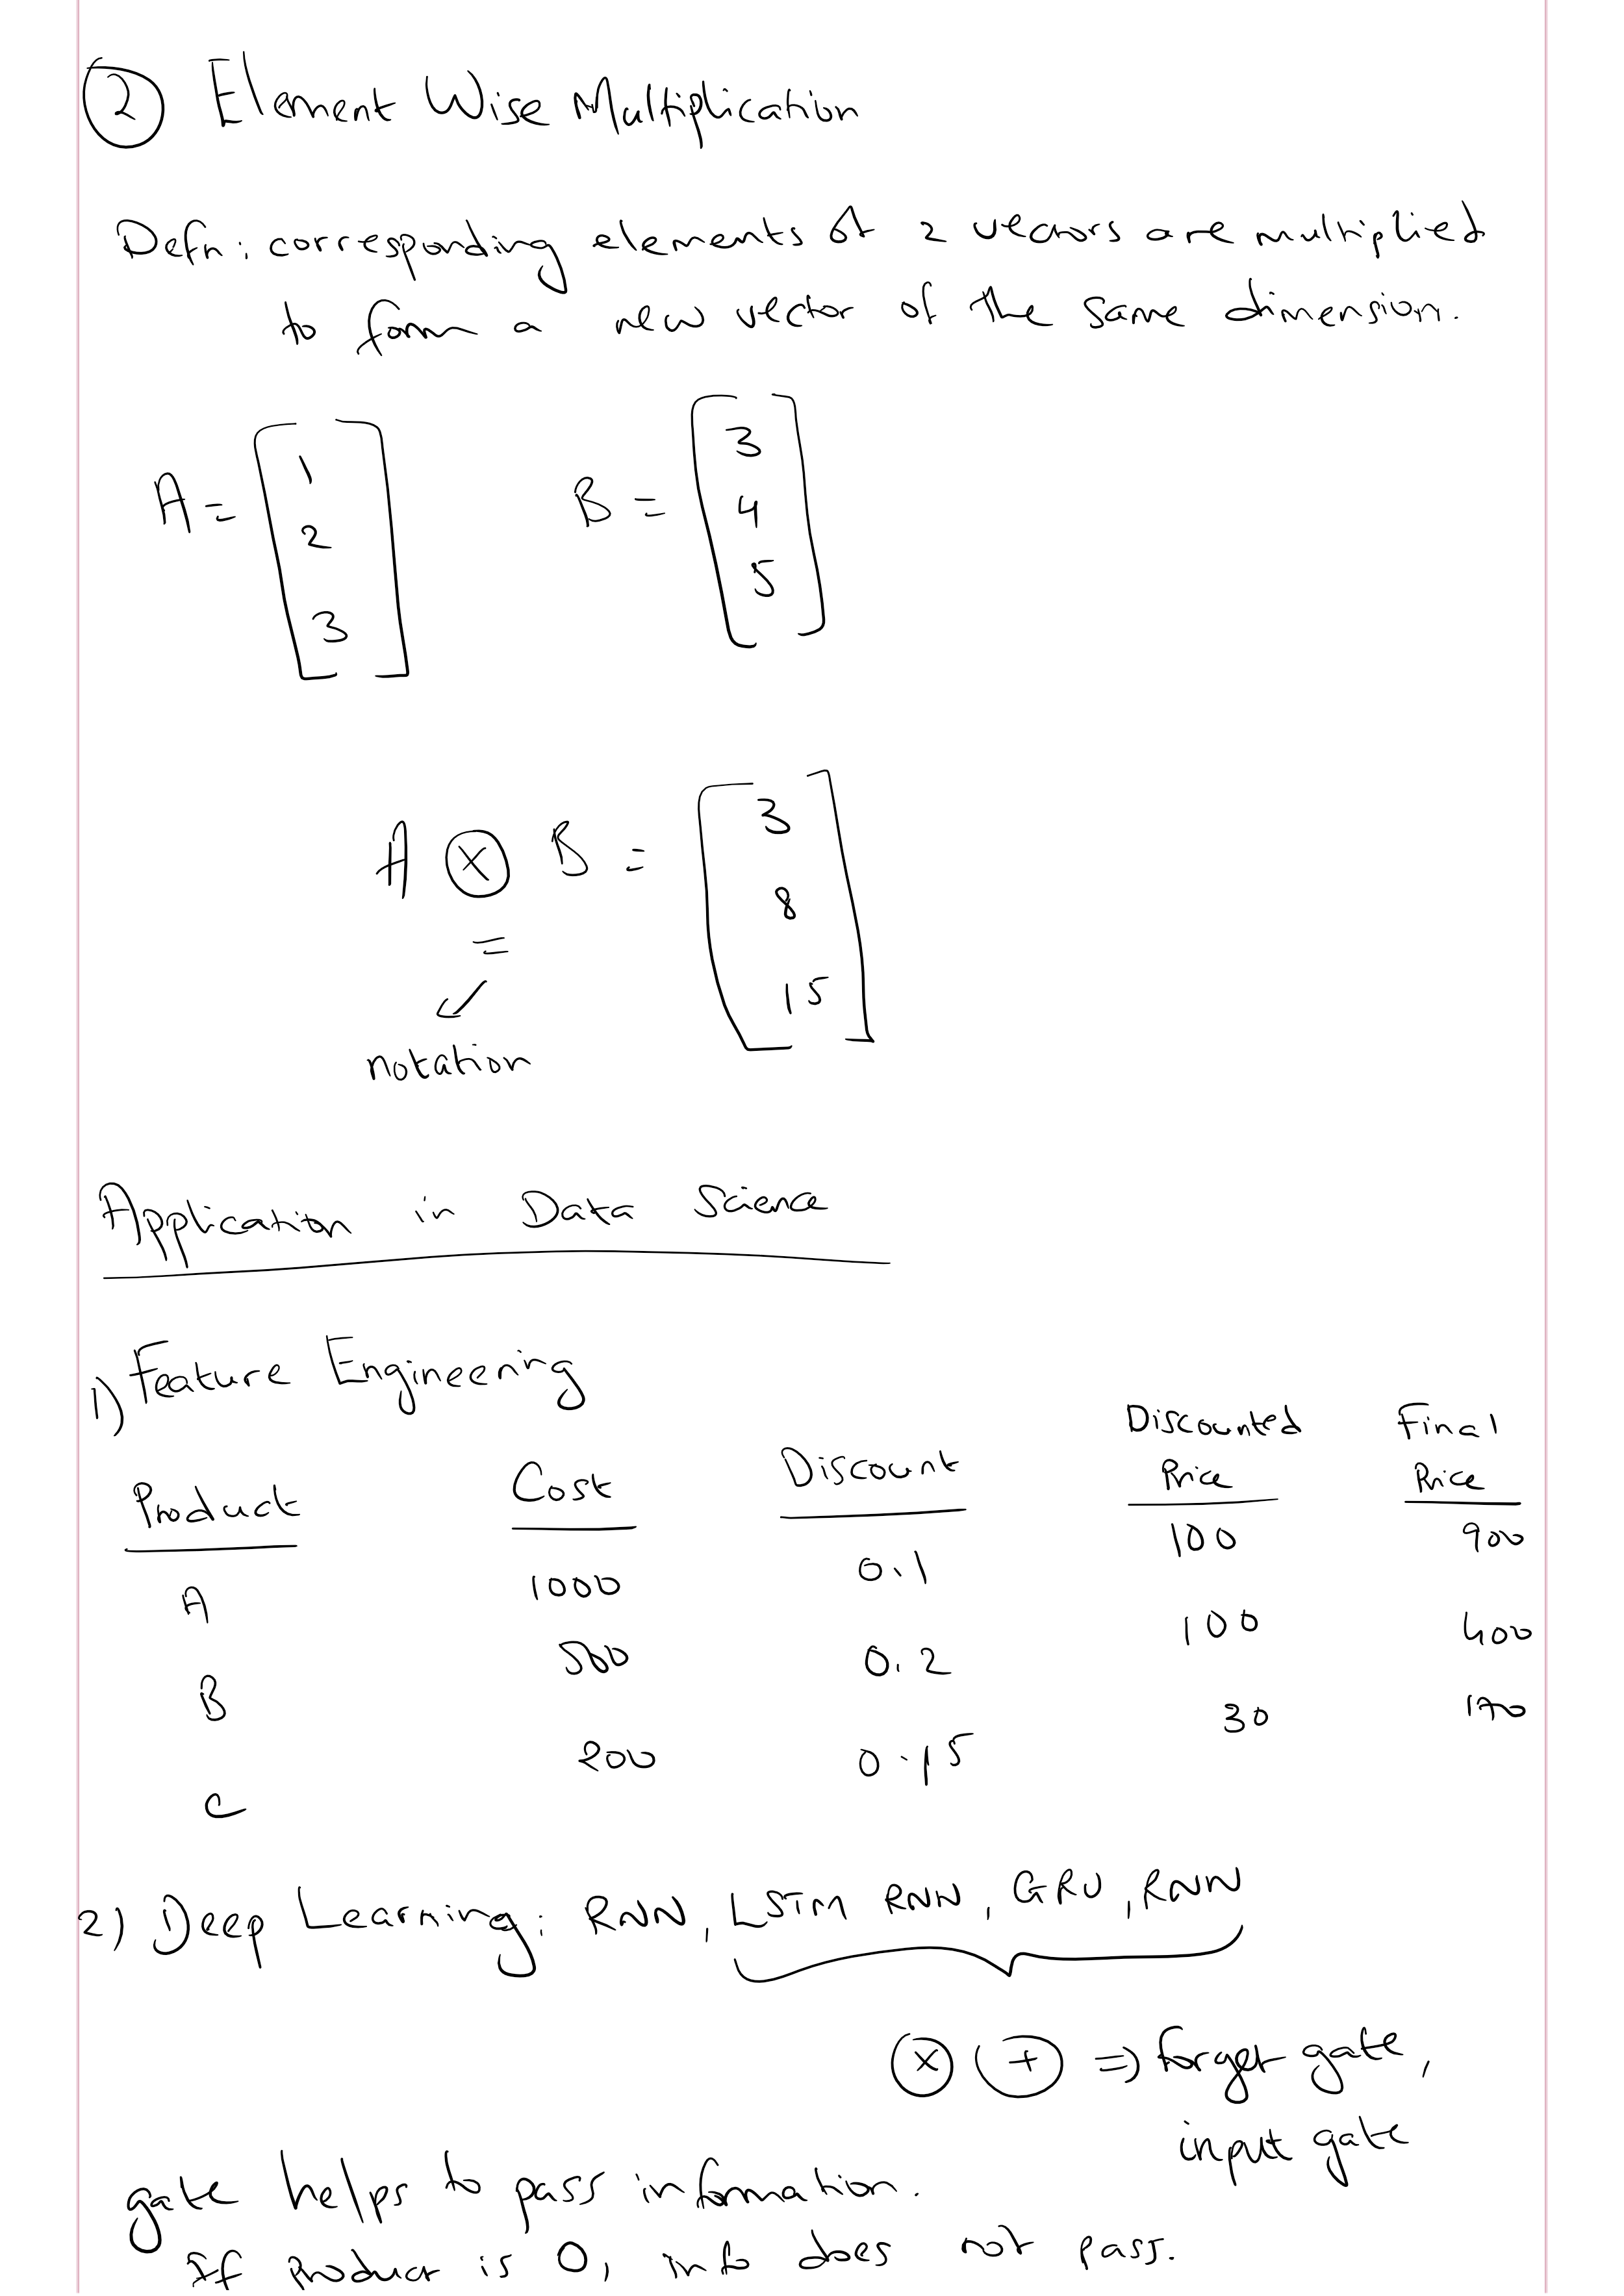 ② Element Wise Multiplication
Defn: corresponding elements of 2 vectors are multiplied
to form a new vector of the same dimension.
A = [1 2 3] B = [3 4 5]
A ⊗ B = [3 8 15]
notation
Application in Data Science
1) Feature Engineering
Product Cost Discount Discounted Price Final Price
A 1000 0.1 100 900
B 500 0.2 100 400
C 200 0.15 30 170
2) Deep Learning: RNN, LSTM RNN, GRU, RNN
⊗ ⊕ => forget gate,
input gate
gate helps to pass information.
If product is 0, info does not pass.